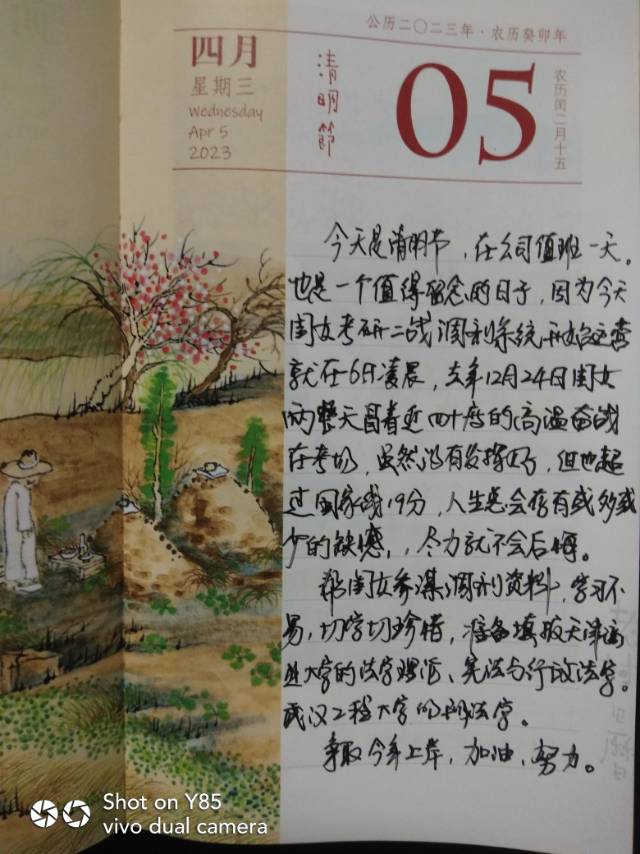 公历二〇二三年·农历癸卯年
四月
星期三
Wednesday
Apr 5
2023
清明節
05
农历闰二月十五
今天是清明节，在公司值班一天。
也是一个值得留念的日子，因为今天
闺女考研二战调剂系统开始运营
就在6日凌晨，去年12月24日闺女
两整天冒着近四十度的高温奋战
在考场，虽然没有发挥好，但也超
过国家线19分，人生总会存有或多或
少的缺憾，尽力就不会后悔。
帮闺女参谋调剂资料，学习不
易，切学切珍惜，准备填报天津商
业大学的法学理论、宪法与行政法学。
武汉工程大学的法学。
争取今年上岸，加油，努力。
Shot on Y85
vivo dual camera